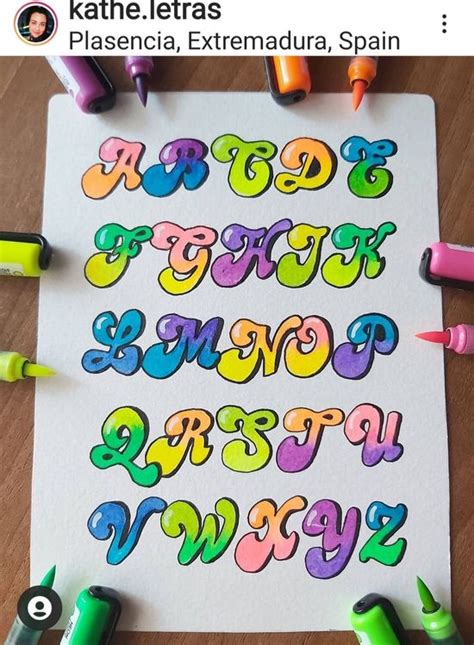 kathe.letras
Plasencia, Extremadura, Spain
A B C D E
F G H I K
L M N O P
Q R S T U
V W X Y Z